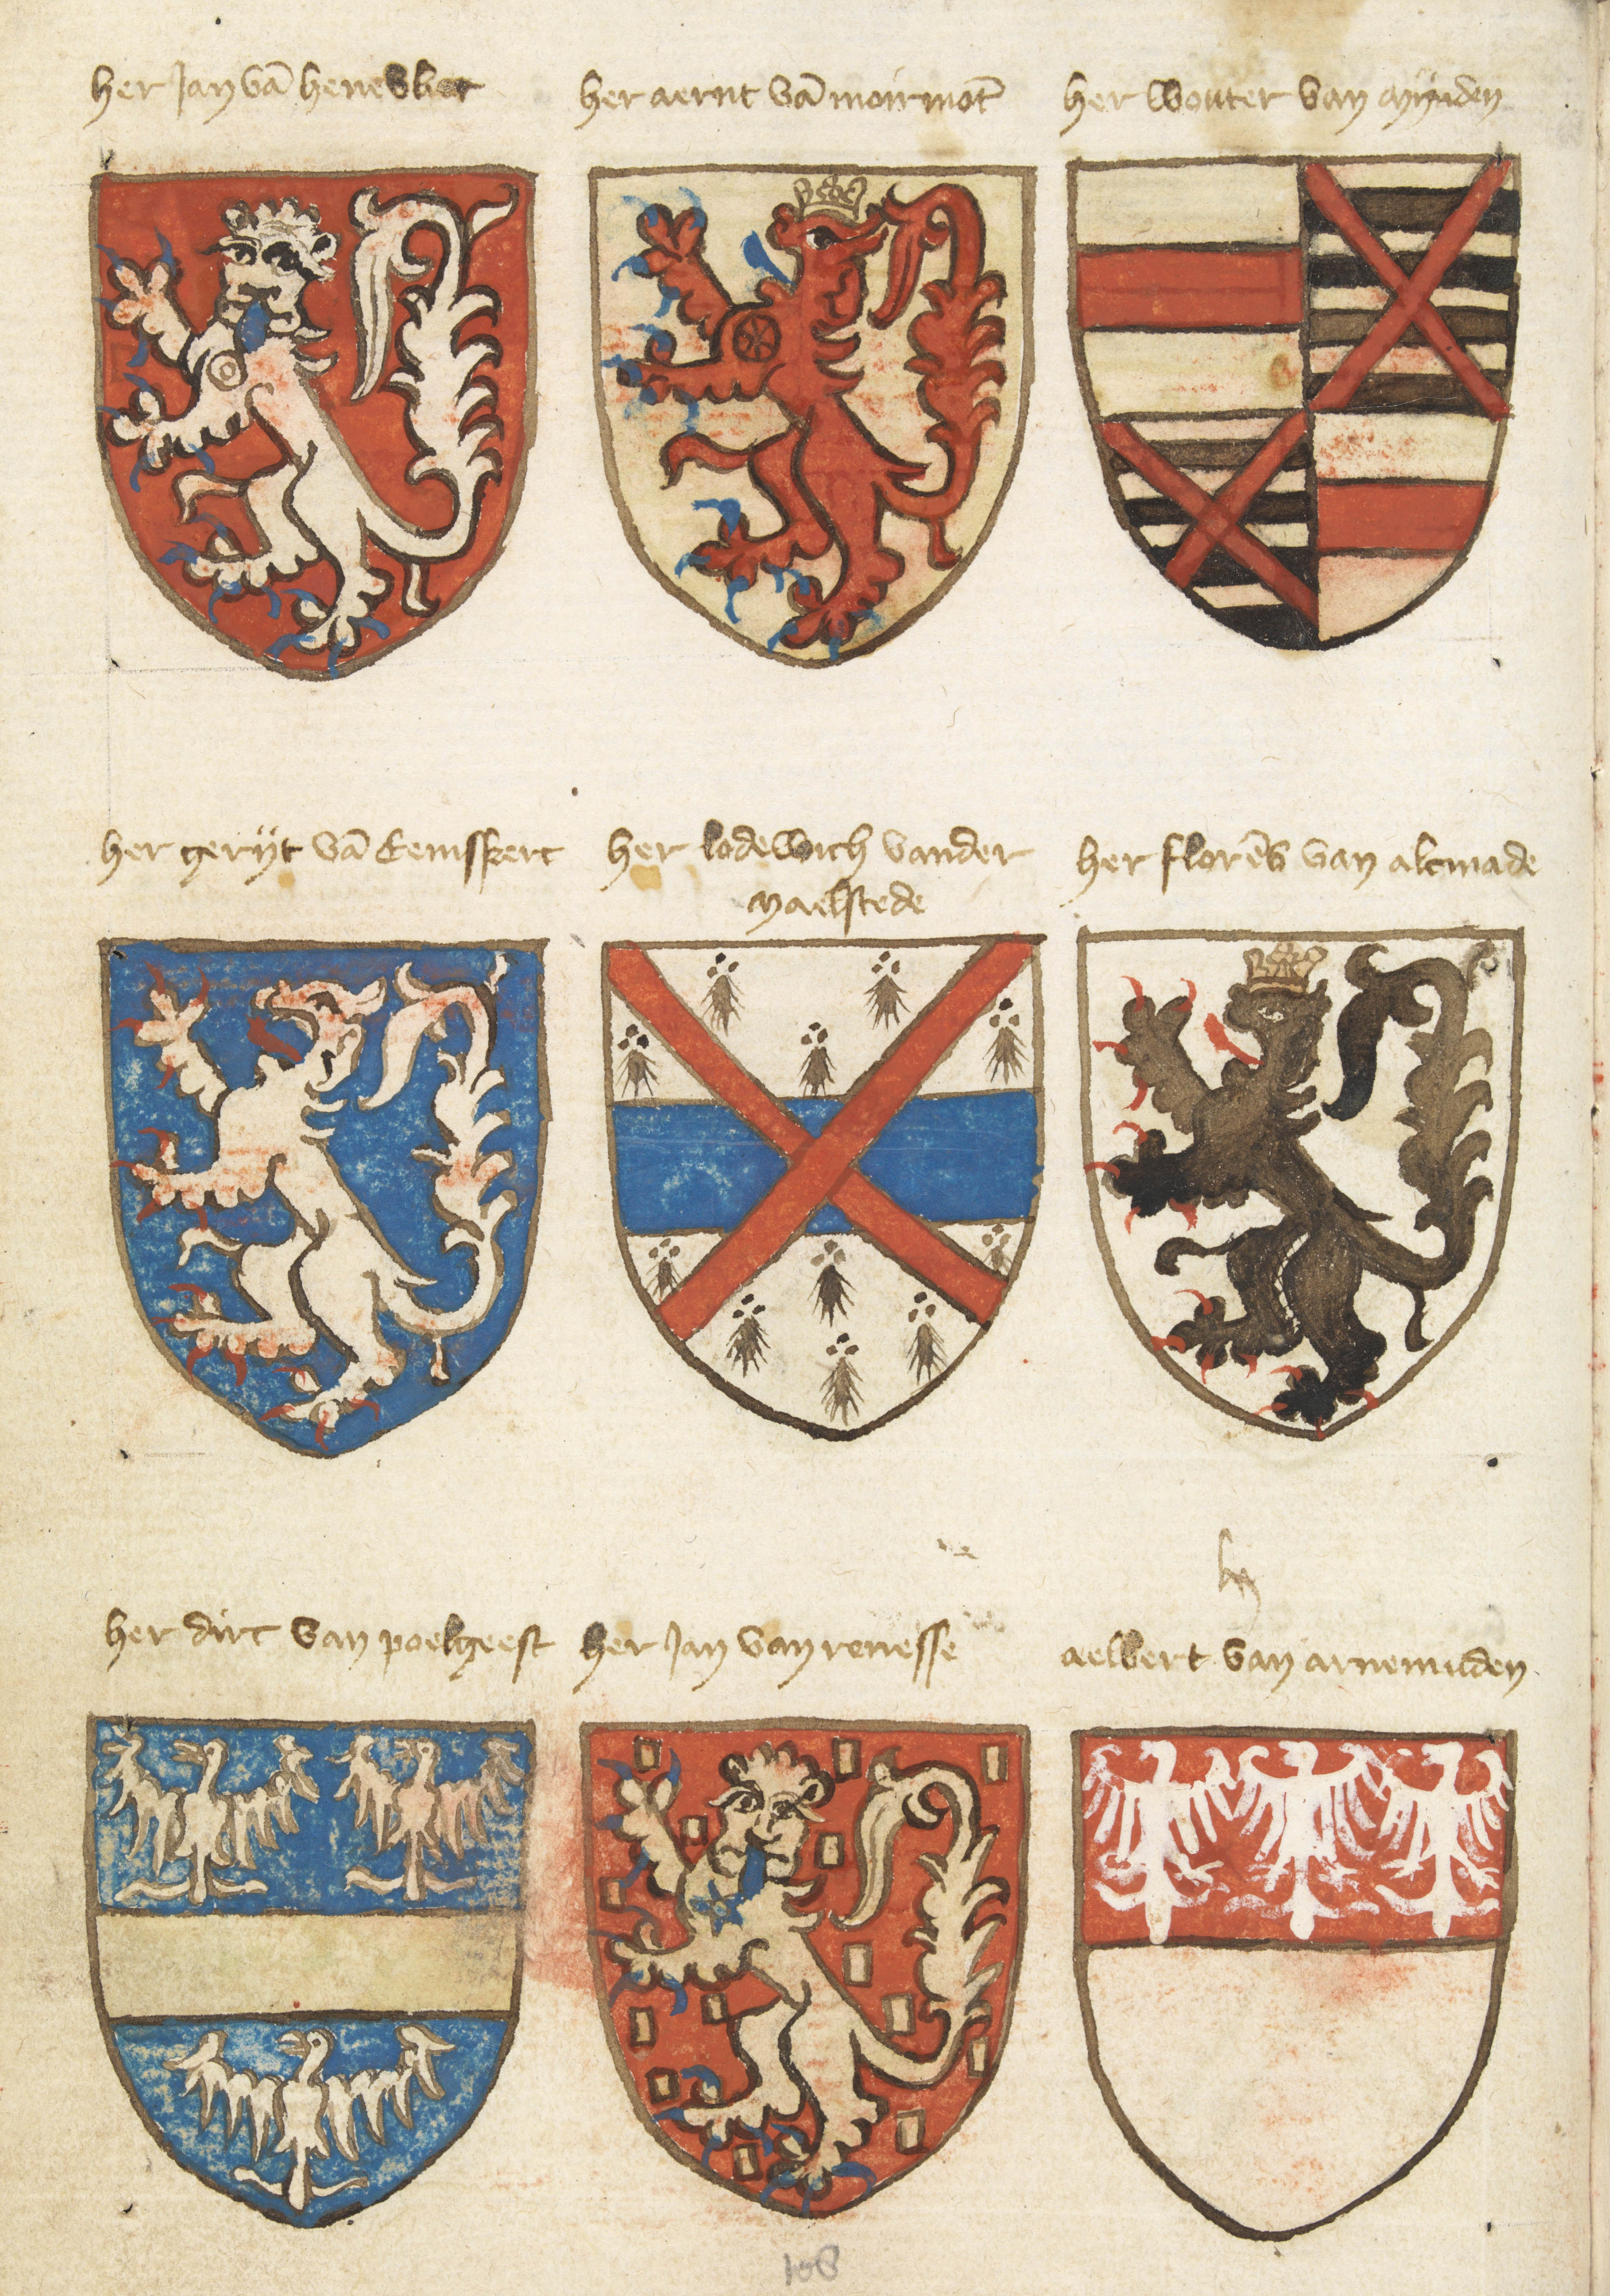 her Jan vā henevliet
her aernt vā moirmōt
her wouter van mÿnden
her gerÿt vā Eemskerc
her lodewich vander
maelstede
her florēs van alcmade
her dirc van poelgeest
her Jan van renesse
aelbert van arnemuden
108